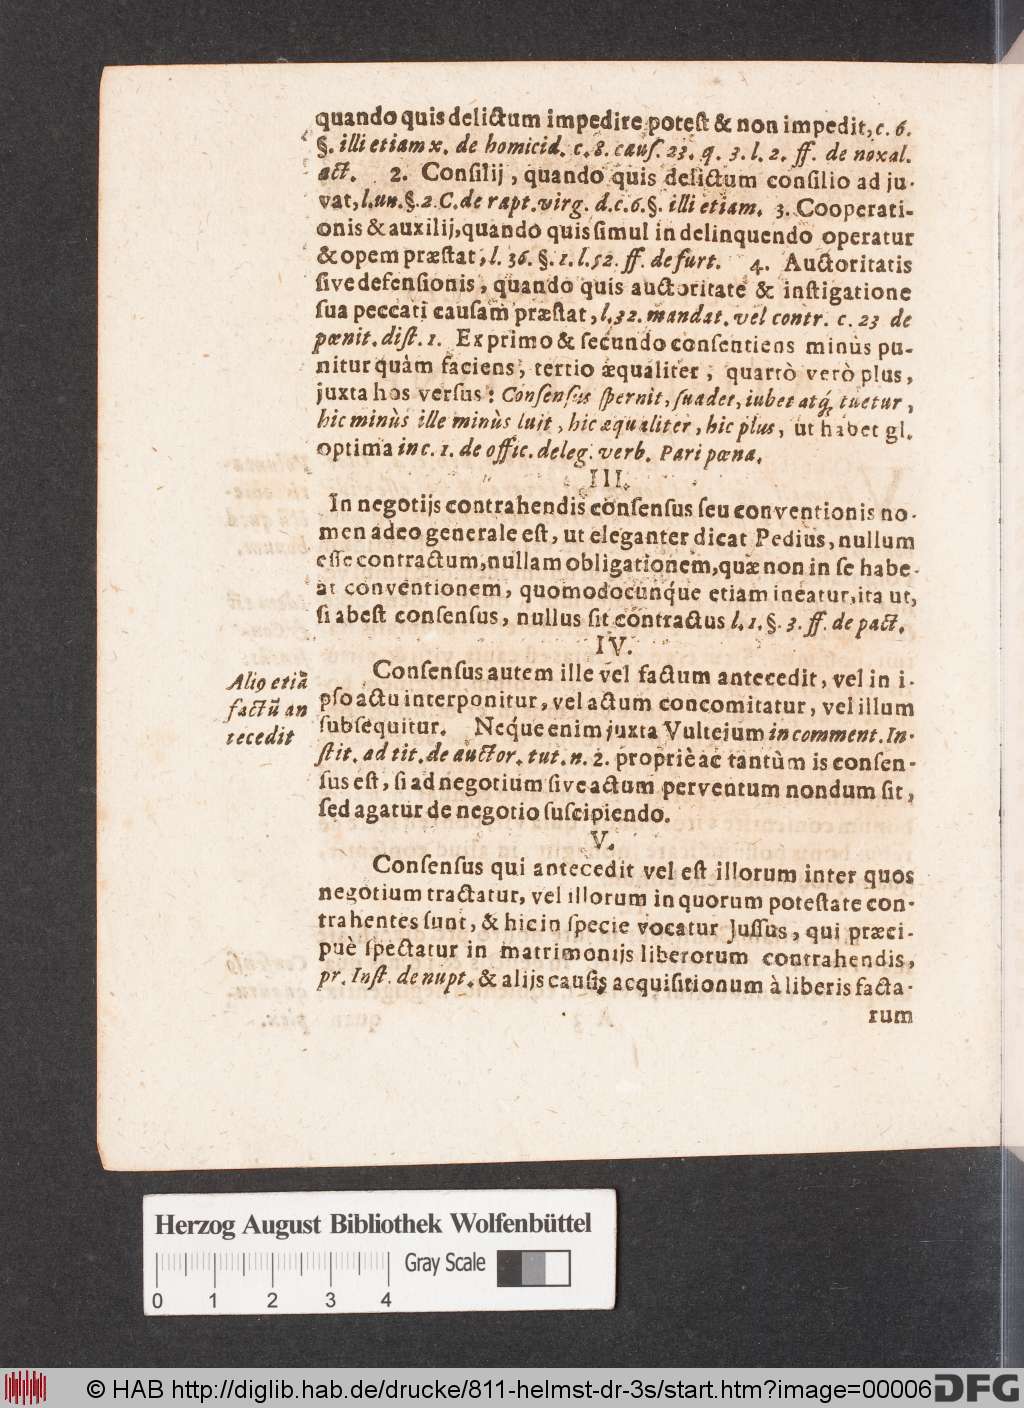 quando quis delictum impedire potest & non impedit, c. 6.
§. illi etiam x. de homicid. c. 8. cauſ. 23. q. 3. l. 2. ff. de noxal.
act. 2. Conſilij, quando quis delictum conſilio ad ju-
vat, l. un. §. 2. C. de rapt. virg. d. c. 6. §. illi etiam. 3. Cooperati-
onis & auxilij, quando quis ſimul in delinquendo operatur
& opem præſtat, l. 36. §. 1. l. 52. ff. de furt. 4. Auctoritatis
ſive defenſionis, quando quis auctoritate & inſtigatione
ſua peccati cauſam præſtat, l. 32. mandat. vel contr. c. 23 de
pœnit. diſt. 1. Ex primo & ſecundo conſentiens minùs pu-
nitur quàm faciens, tertio æqualiter, quartò verò plus,
juxta hos verſus: Conſenſus ſpernit, ſuadet, iubet atq́; tuetur,
hic minùs ille minùs luit, hic æqualiter, hic plus, ut habet gl.
optima in c. 1. de offic. deleg. verb. Pari pœna.
III.
In negotijs contrahendis conſenſus ſeu conventionis no-
men adeo generale eſt, ut eleganter dicat Pedius, nullum
eſſe contractum, nullam obligationem, quæ non in ſe habe-
at conventionem, quomodocunq́ue etiam ineatur, ita ut,
ſi abeſt conſenſus, nullus ſit contractus l. 1. §. 3. ff. de pact.
IV.
Conſenſus autem ille vel factum antecedit, vel in i-
pſo actu interponitur, vel actum concomitatur, vel illum
ſubſequitur. Neq́ue enim juxta Vultejum in comment. In-
ſtit. ad tit. de auctor. tut. n. 2. propriè ac tantùm is conſen-
ſus eſt, ſi ad negotium ſive actum perventum nondum ſit,
ſed agatur de negotio ſuſcipiendo.
Aliꝰ etiã
factũ an
tecedit
V.
Conſenſus qui antecedit vel eſt illorum inter quos
negotium tractatur, vel illorum in quorum poteſtate con-
trahentes ſunt, & hic in ſpecie vocatur Juſſus, qui præci-
puè ſpectatur in matrimonijs liberorum contrahendis,
pr. Inſt. de nupt. & alijs cauſis acquiſitionum à liberis facta-
rum
Herzog August Bibliothek Wolfenbüttel
Gray Scale
0 1 2 3 4
© HAB http://diglib.hab.de/drucke/811-helmst-dr-3s/start.htm?image=00006
DFG